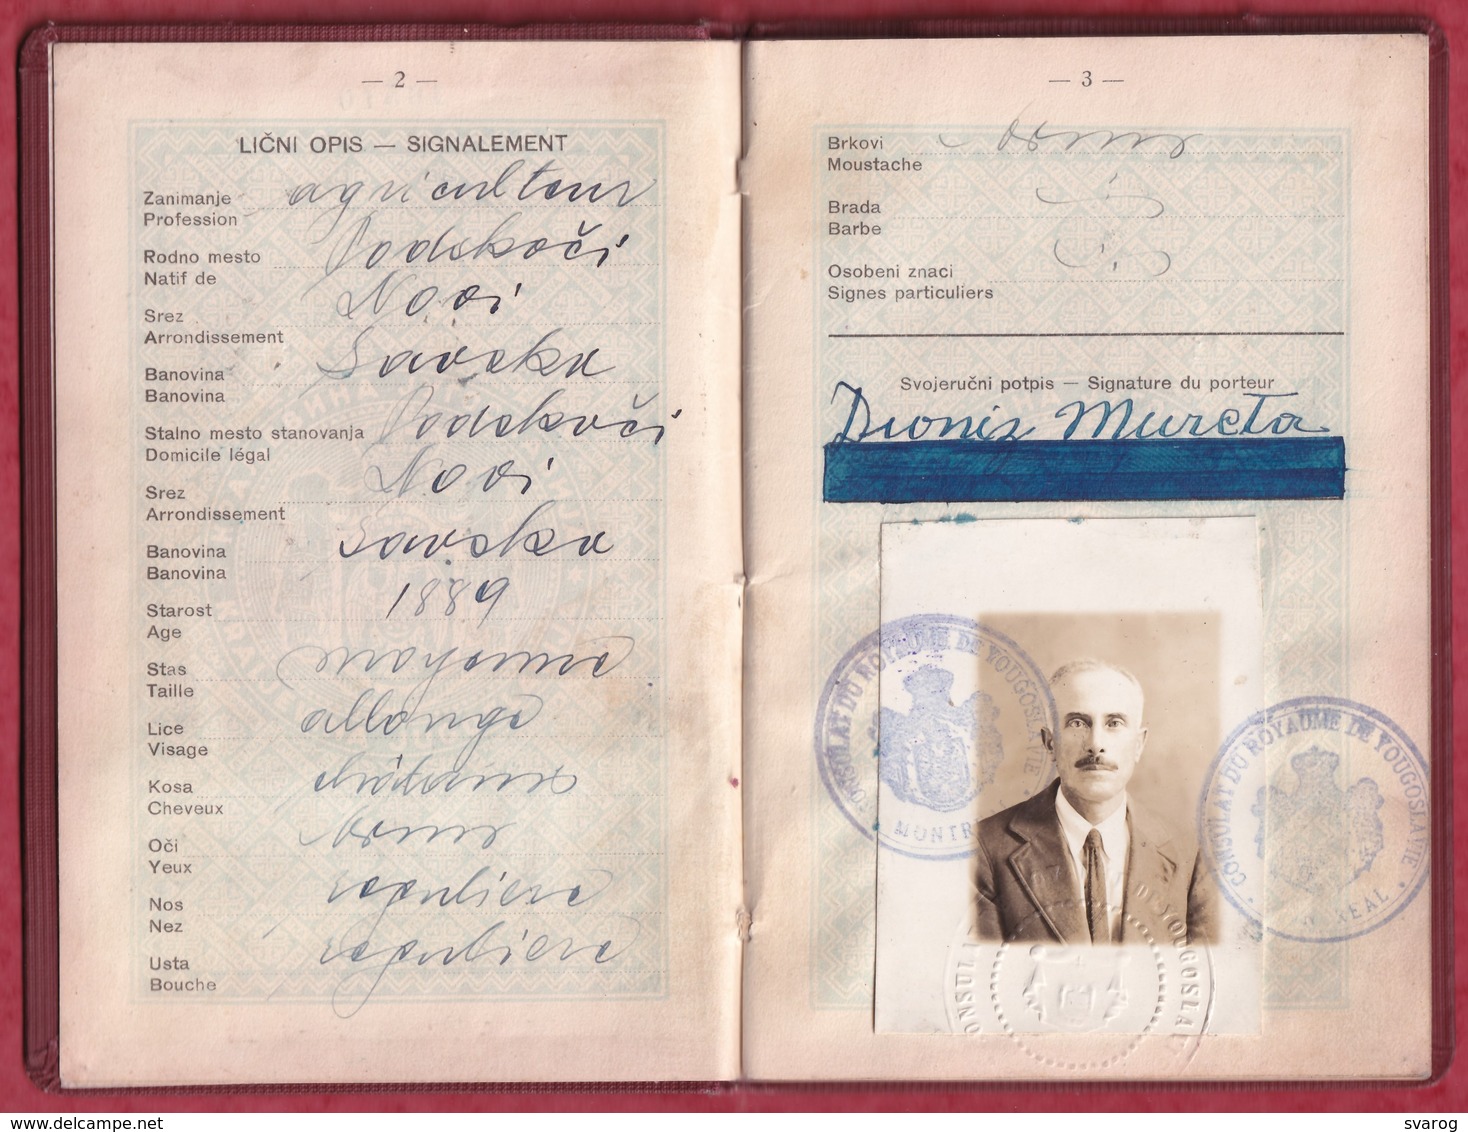 — 2 —
LIČNI OPIS — SIGNALEMENT
Zanimanje agriculteur
Profession
Rodno mesto Podskoči
Natif de
Srez Novi
Arrondissement
Banovina Savska
Banovina
Stalno mesto stanovanja Podskoči
Domicile légal
Srez Novi
Arrondissement
Banovina Savska
Banovina
Starost 1889
Age
Stas moyenne
Taille
Lice allongé
Visage
Kosa châtains
Cheveux
Oči bruns
Yeux
Nos regulière
Nez
Usta regulière
Bouche
— 3 —
Brkovi bruns
Moustache
Brada
Barbe
Osobeni znaci
Signes particuliers
Svojeručni potpis — Signature du porteur
Dioniz Mureta
CONSULAT DU ROYAUME DE YOUGOSLAVIE
MONTR
CONSULAT DU ROYAUME DE YOUGOSLAVIE
MONTREAL
svarog